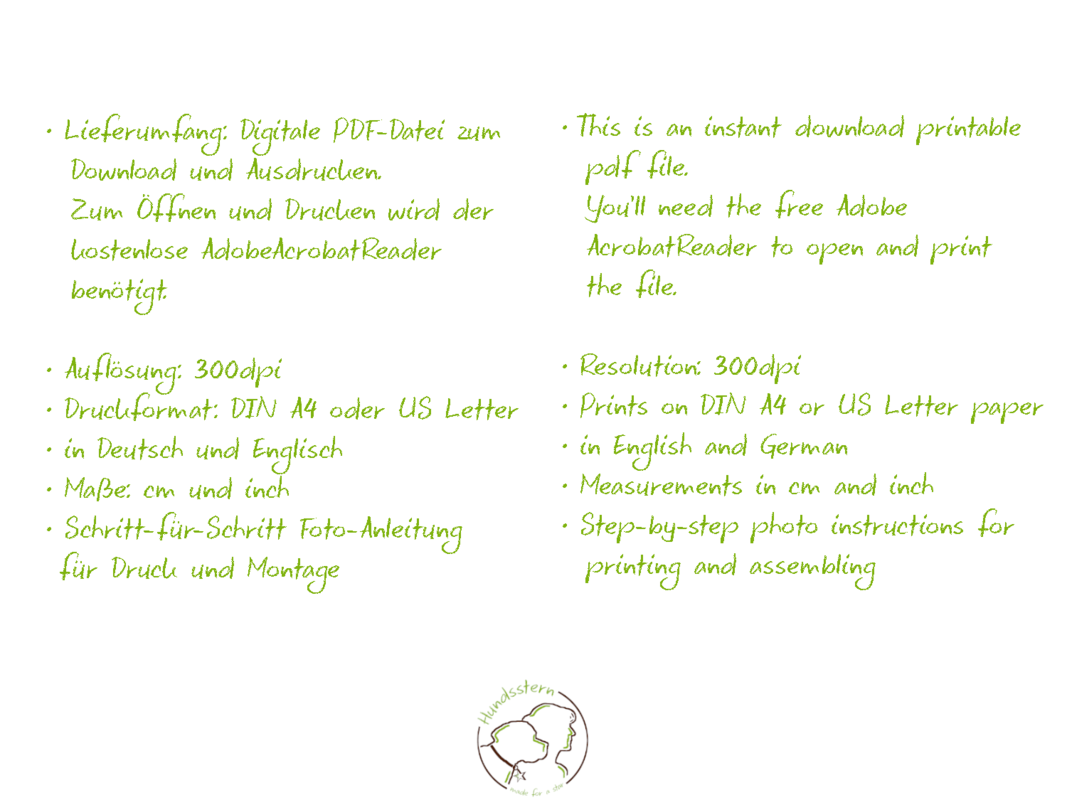 • Lieferumfang: Digitale PDF-Datei zum
Download und Ausdrucken.
Zum Öffnen und Drucken wird der
kostenlose AdobeAcrobatReader
benötigt.
• Auflösung: 300dpi
• Druckformat: DIN A4 oder US Letter
• in Deutsch und Englisch
• Maße: cm und inch
• Schritt-für-Schritt Foto-Anleitung
für Druck und Montage
• This is an instant download printable
pdf file.
You'll need the free Adobe
AcrobatReader to open and print
the file.
• Resolution: 300dpi
• Prints on DIN A4 or US Letter paper
• in English and German
• Measurements in cm and inch
• Step-by-step photo instructions for
printing and assembling
Hundsstern
made for a star